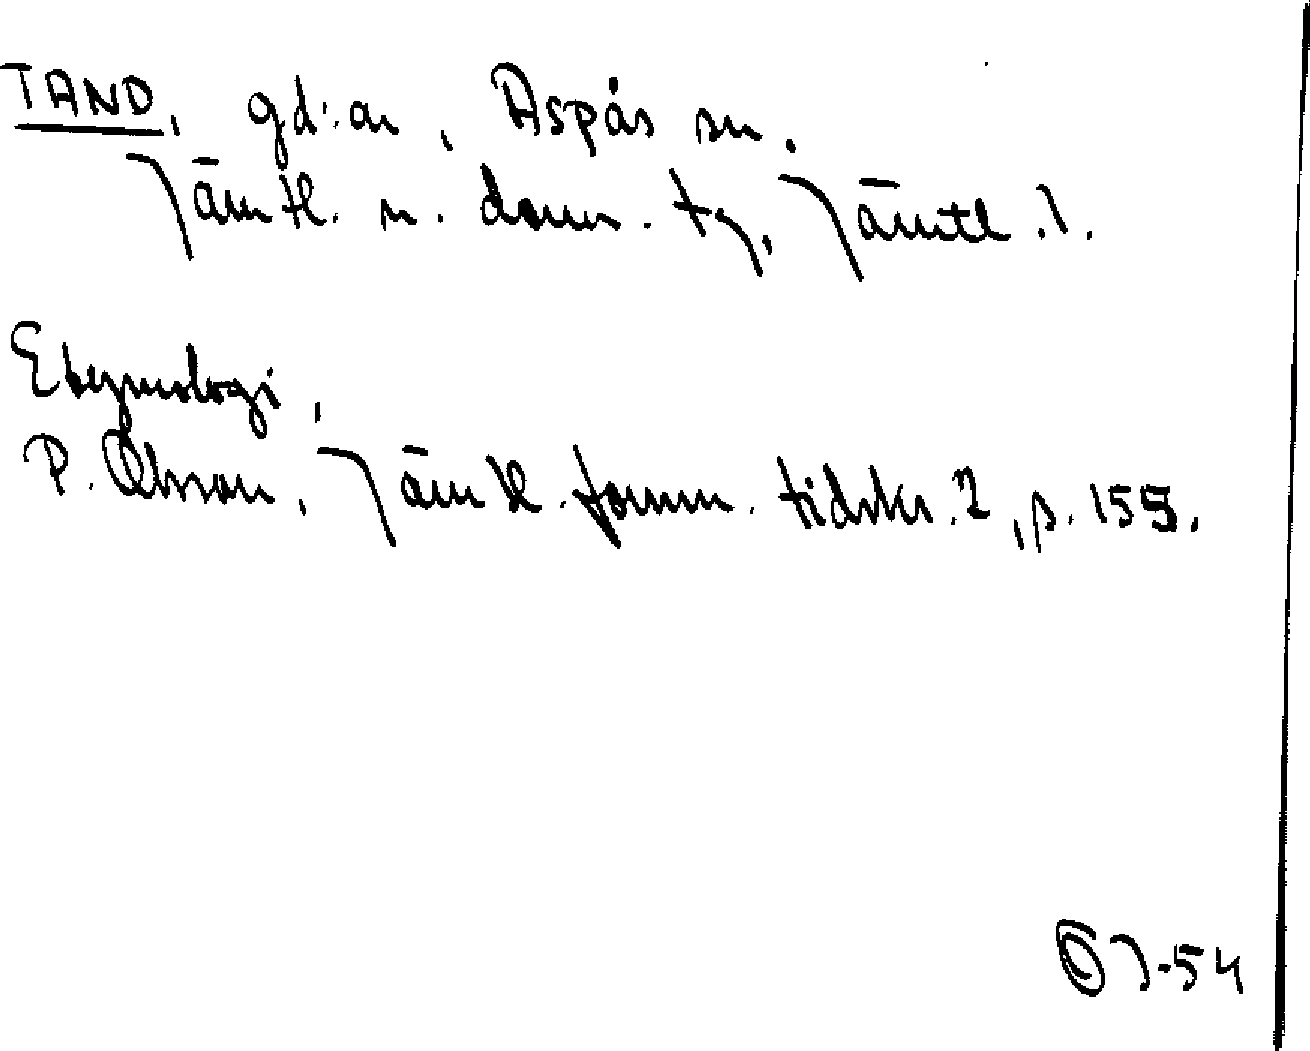 TAND, gd:ar, Aspås sn.
Jämtl. n. doms. tg, Jämtl. l.
Etymologi,
P. Olsson, Jämtl. fornm. tidskr. 2, s. 155.